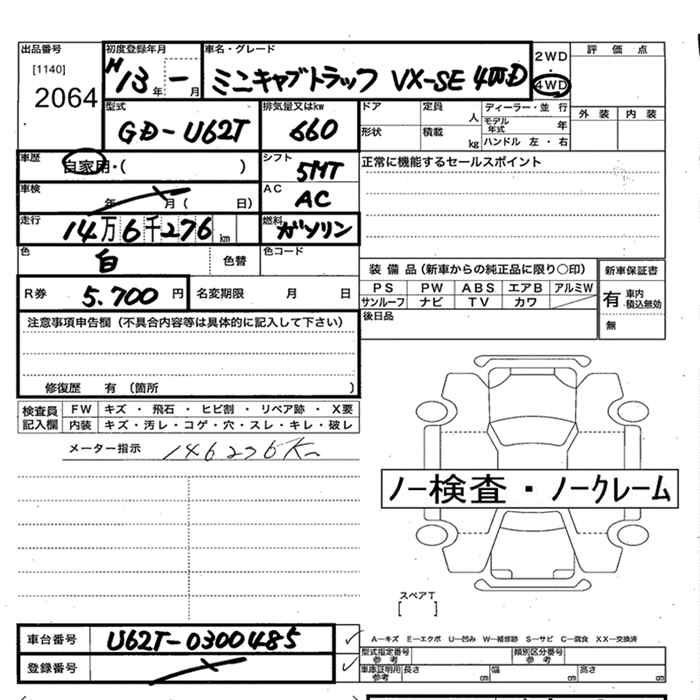 出品番号
[1140]
2064
初度登録年月
H13年 ー 月
車名・グレード
ミニキャブトラック VX-SE 4WD
2WD
・
4WD
評価点
外装 内装
型式
GD-U62T
排気量又はkw
660
ドア
定員
人
ディーラー・並行
モデル年式
年
形状
積載
kg
ハンドル 左・右
車歴
自家用・( )
シフト
5MT
正常に機能するセールスポイント
車検
年 月( 日)
AC
AC
走行
14万6千276km
燃料
ガソリン
色
白
色替
色コード
R券
5.700円
名変期限 月 日
装備品(新車からの純正品に限り〇印)
PS PW ABS エアB アルミW
サンルーフ ナビ TV カワ
新車保証書
有 車内・積込無効
無
後日品
注意事項申告欄(不具合内容等は具体的に記入して下さい)
修復歴 有 (箇所 )
検査員記入欄
FW キズ・飛石・ヒビ割・リペア跡・X要
内装 キズ・汚レ・コゲ・穴・スレ・キレ・破レ
メーター指示 146276Km
ノー検査・ノークレーム
スペアT
[ ]
車台番号
U62T-0300485
登録番号
A-キズ E-エクボ U-凹み W-補修跡 S-サビ C-腐食 XX-交換済
型式指定番号
参考
類別区分番号
参考
車庫証明用
参考
長さ cm
幅 cm
高さ cm